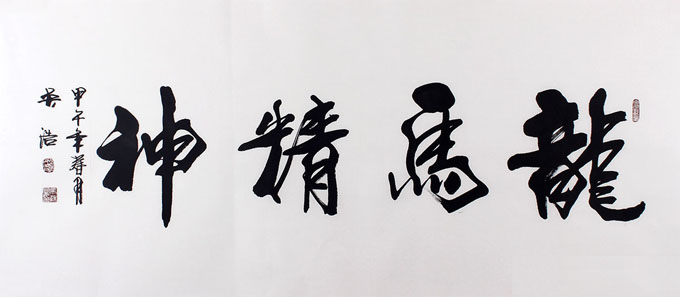 龍馬精神
甲午年春月
吴浩